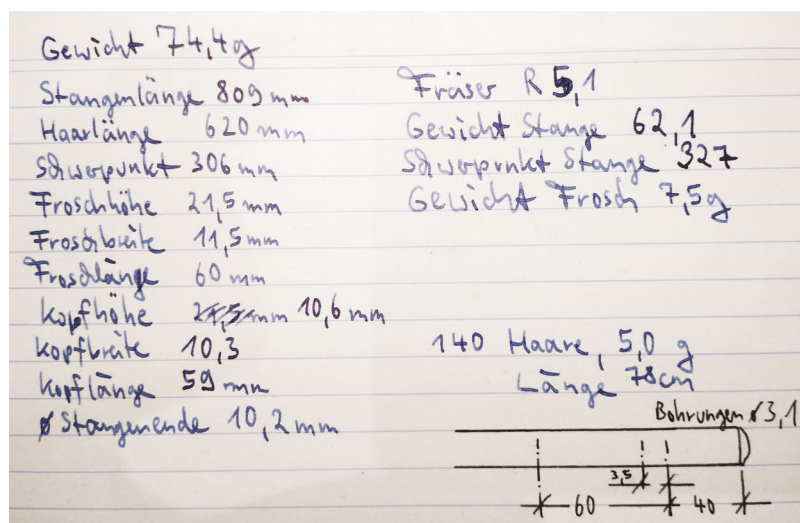 Gewicht 74,4g
Stangenlänge 809 mm
Haarlänge 620 mm
Schwerpunkt 306 mm
Froschhöhe 21,5 mm
Froschbreite 11,5 mm
Froschlänge 60 mm
Kopfhöhe 21,5 mm 10,6 mm
Kopfbreite 10,3
Kopflänge 59 mm
ø Stangenende 10,2 mm
Fräser R 5,1
Gewicht Stange 62,1
Schwerpunkt Stange 327
Gewicht Frosch 7,5g
140 Haare, 5,0 g
Länge 78cm
Bohrungen ø 3,1
3,5
60 40